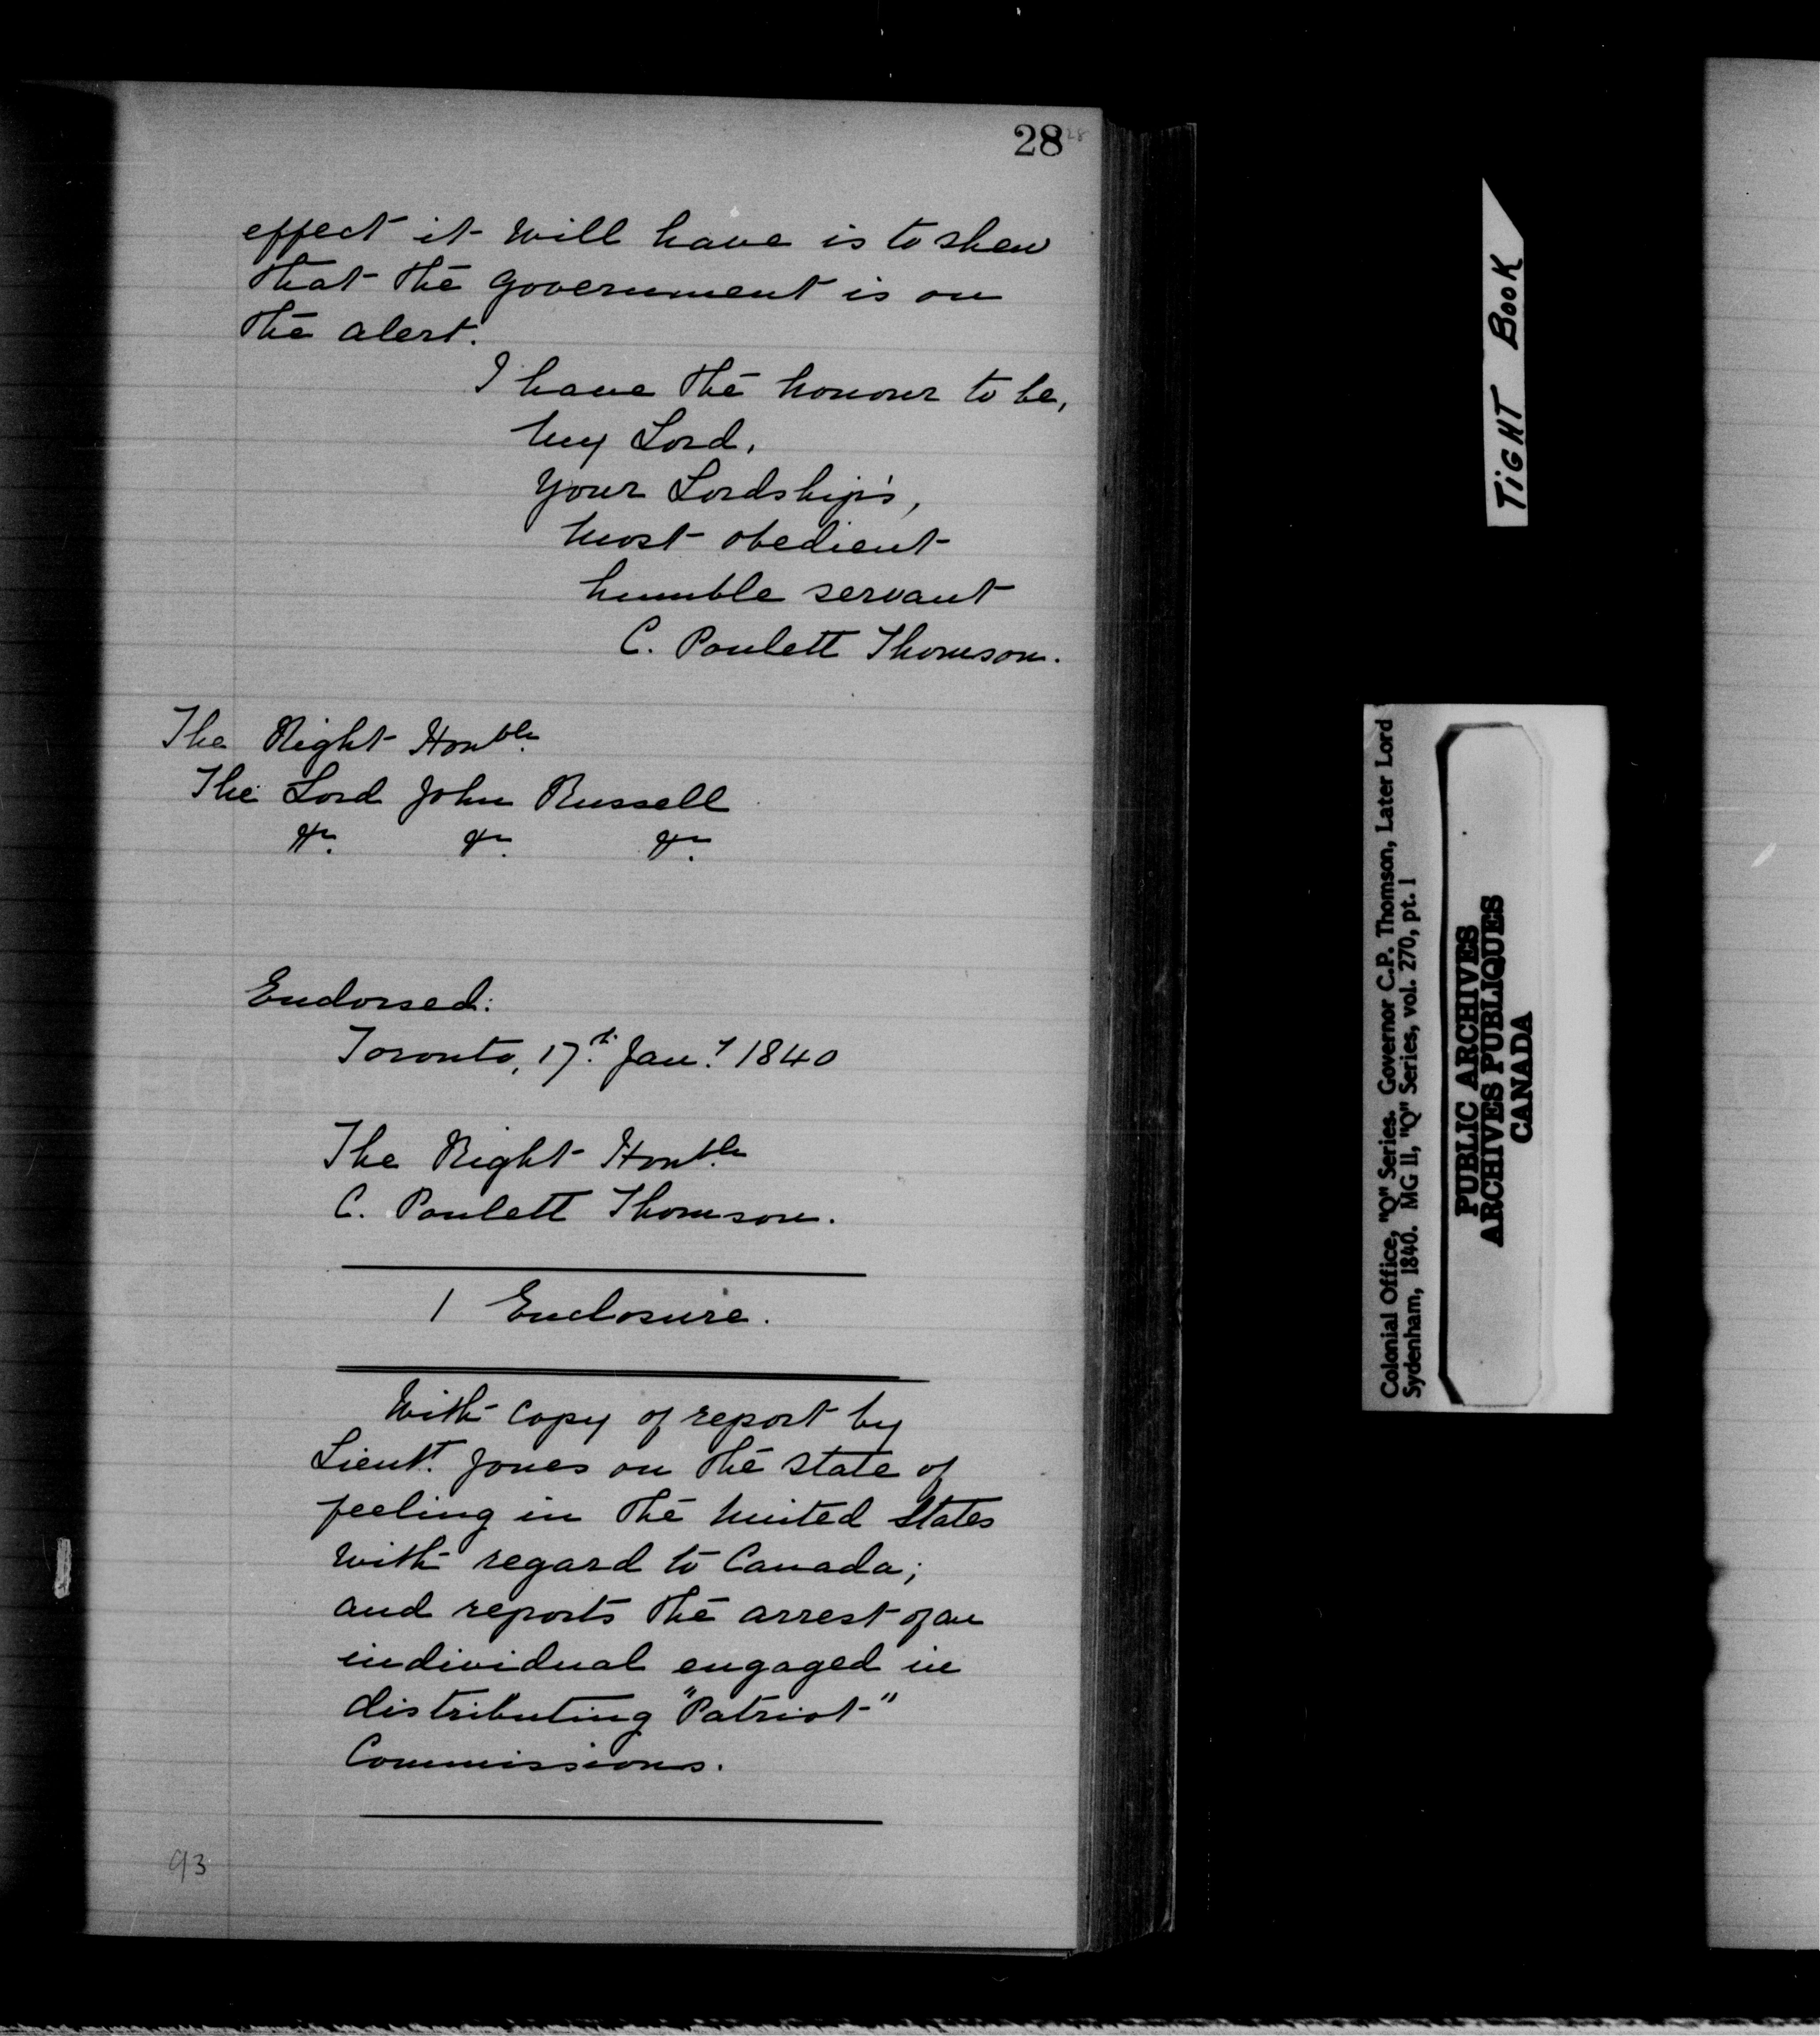 28 28
effect it will have is to shew
that the Government is on
the alert.
I have the honour to be,
My Lord,
Your Lordship's,
most obedient
humble servant
C. Poulett Thomson.
The Right Honble
The Lord John Russell
&c. &c. &c.
Endorsed:
Toronto, 17th Jany 1840
The Right Honble
C. Poulett Thomson.
1 Enclosure.
With copy of report by
Lieut. Jones on the state of
feeling in the United States
with regard to Canada;
and reports the arrest of an
individual engaged in
distributing "Patriot"
Commissions.
93
TIGHT BOOK
Colonial Office, "Q" Series. Governor C.P. Thomson, Later Lord
Sydenham, 1840. MG 11, "Q" Series, vol. 270, pt. 1
PUBLIC ARCHIVES
ARCHIVES PUBLIQUES
CANADA